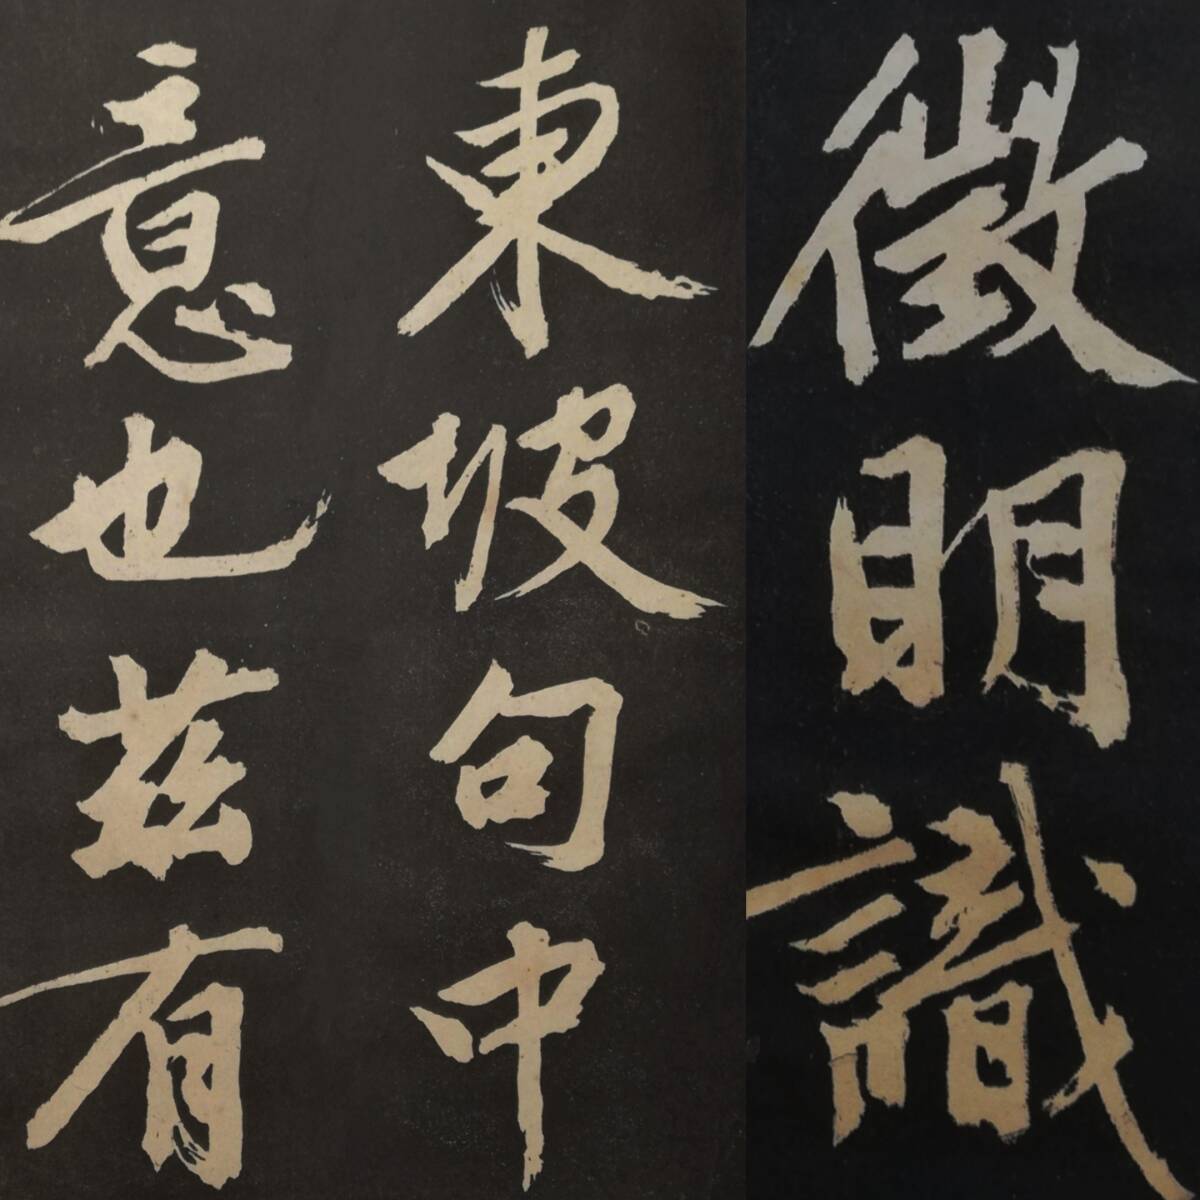 徵明識
東坡句中
意也茲有